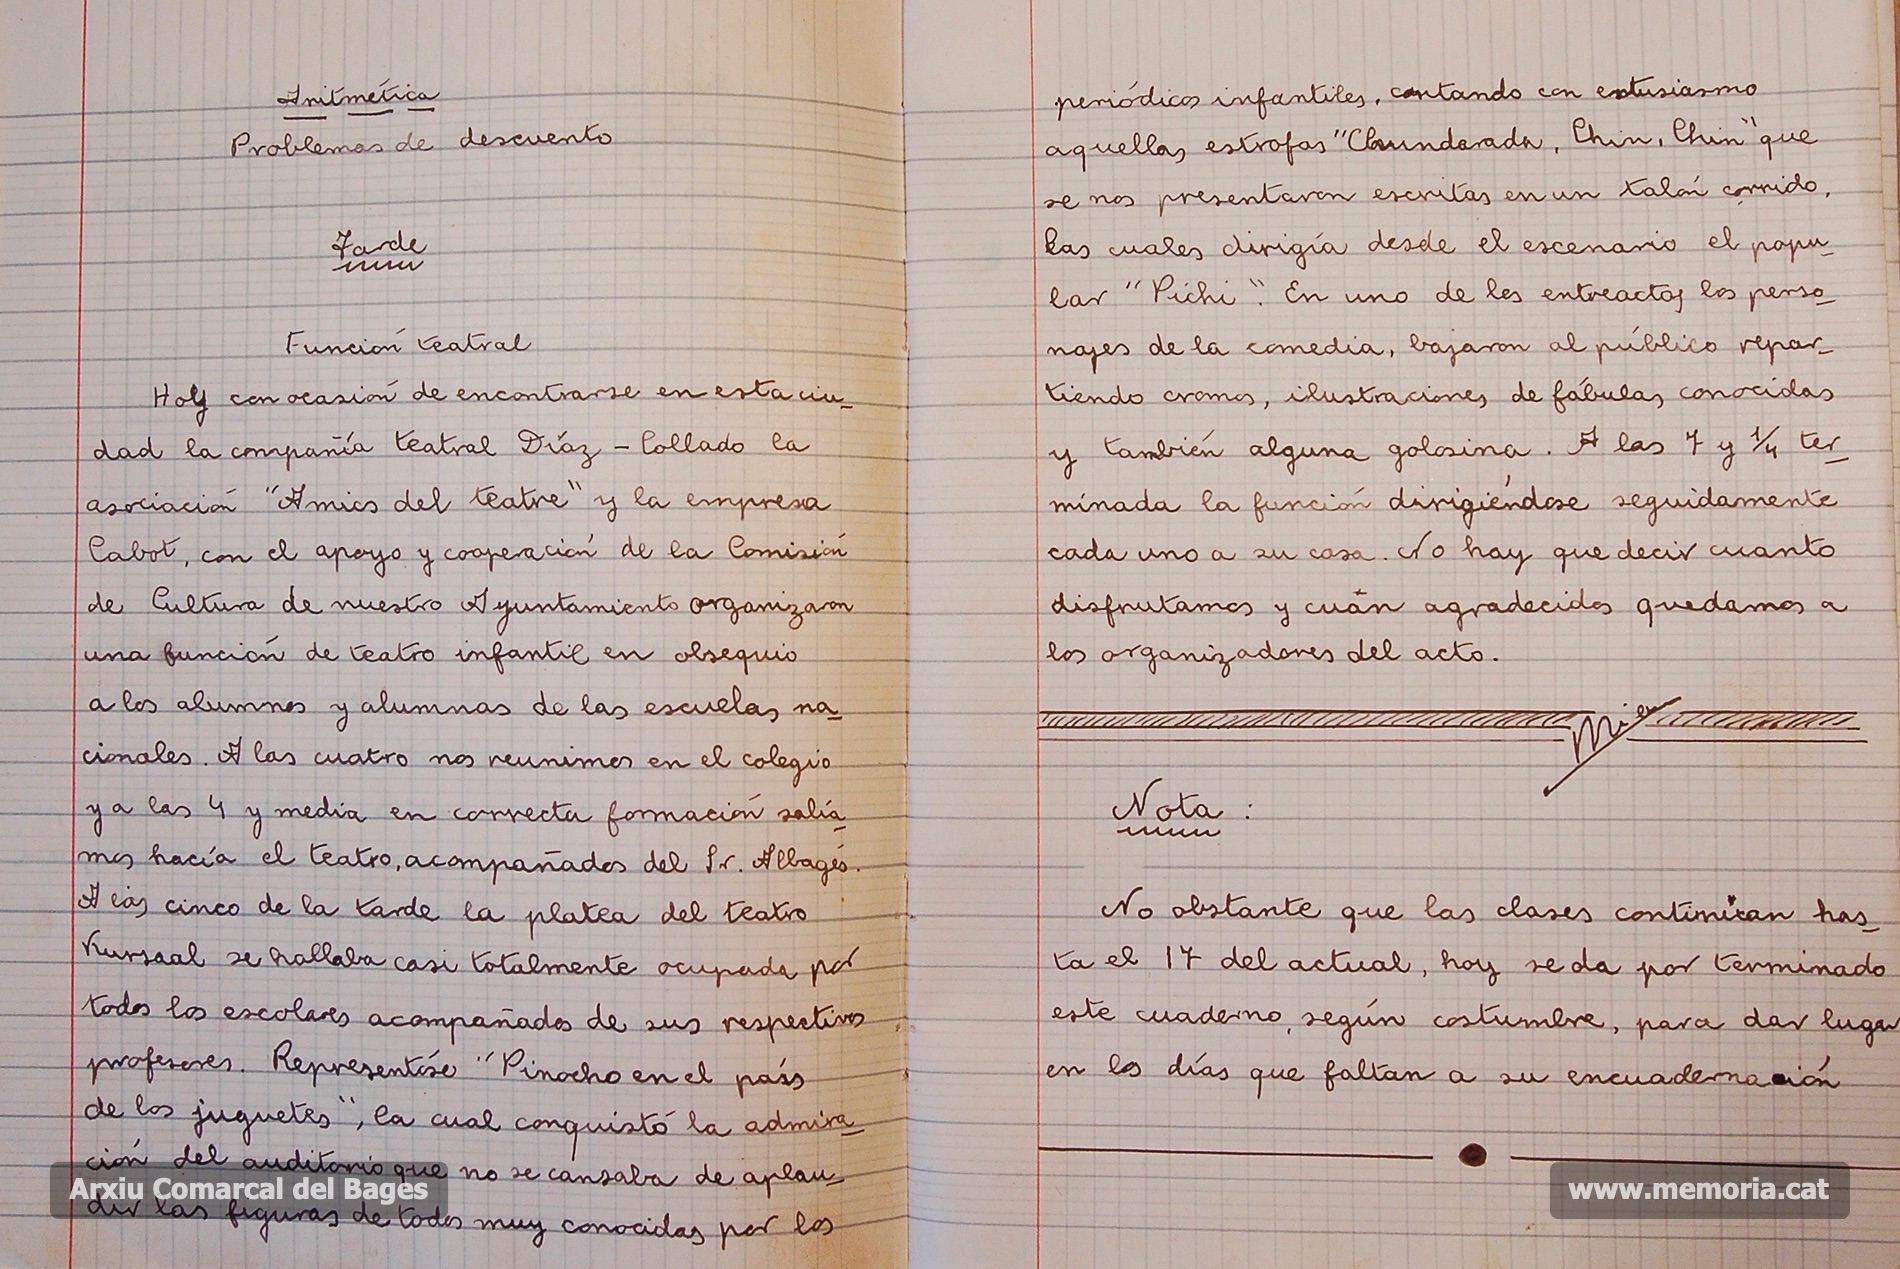 Aritmética
Problemas de descuento
Tarde
Función teatral
Hoy con ocasión de encontrarse en esta ciu-
dad la compañía teatral Díaz - Collado la
asociación "Amics del teatre" y la empresa
Cabot, con el apoyo y cooperación de la Comisión
de Cultura de nuestro Ayuntamiento organizaron
una función de teatro infantil en obsequio
a los alumnos y alumnas de las escuelas na-
cionales. A las cuatro nos reunimos en el colegio
y a las 4 y media en correcta formación salía-
mos hacía el teatro, acompañados del Sr. Albagés.
A las cinco de la tarde la platea del teatro
Kursaal se hallaba casi totalmente ocupada por
todos los escolares acompañados de sus respectivos
profesores. Representóse "Pinocho en el país
de los juguetes", la cual conquistó la admira-
ción del auditorio que no se cansaba de aplau-
dir las figuras de todos muy conocidas por los
periódicos infantiles, cantando con entusiasmo
aquellas estrofas "Chundarada, Chin, Chin" que
se nos presentaron escritas en un talón corrido,
las cuales dirigía desde el escenario el popu-
lar "Pichi". En uno de los entreactos los perso-
najes de la comedia, bajaron al público repar-
tiendo cromos, ilustraciones de fábulas conocidas
y también alguna golosina. A las 7 y 1/4 ter-
minada la función dirigiéndose seguidamente
cada uno a su casa. No hay que decir cuanto
disfrutamos y cuán agradecidos quedamos a
los organizadores del acto.
Nota:
No obstante que las clases continúan has-
ta el 17 del actual, hoy se da por terminado
este cuaderno, según costumbre, para dar lugar
en los días que faltan a su encuadernación
Arxiu Comarcal del Bages
www.memoria.cat